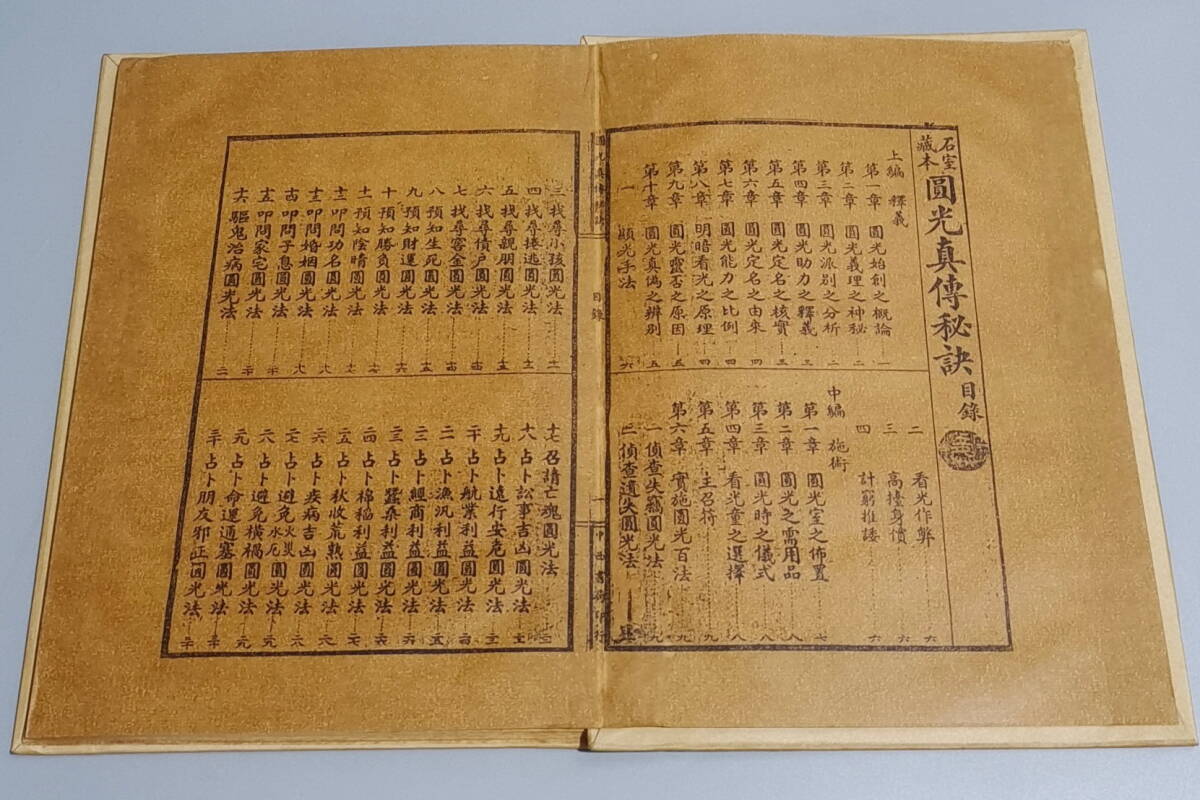 石室藏本圓光真傳秘訣目錄
上編 釋義
第一章 圓光始創之概論 一
第二章 圓光義理之神秘 二
第三章 圓光派別之分析 二
第四章 圓光助力之釋義 三
第五章 圓光定名之核實 三
第六章 圓光定名之由來 四
第七章 圓光能力之比例 四
第八章 明暗看光之原理 四
第九章 圓光靈否之原因 五
第十章 圓光真偽之辨別 五
一 顯光手法 六
二 看光作弊 六
三 高擡身價 六
四 計窮推諉 六
中編 施術
第一章 圓光室之佈置 七
第二章 圓光之需用品 八
第三章 圓光時之儀式 八
第四章 看光童之選擇 八
第五章 主召符 九
第六章 實施圓光百法 九
一 偵查失竊圓光法 九
二 偵查遺失圓光法
目錄
三 找尋小孩圓光法
四 找尋捲逃圓光法
五 找尋親朋圓光法
六 找尋債户圓光法
七 找尋窖金圓光法
八 預知生死圓光法
九 預知財運圓光法
十 預知勝負圓光法
十一 預知陰晴圓光法
十二 叩問功名圓光法
十三 叩問婚姻圓光法
十四 叩問子息圓光法
十五 叩問家宅圓光法
十六 驅鬼治病圓光法
十七 召請亡魂圓光法
十八 占卜訟事吉凶圓光法
十九 占卜遠行安危圓光法
二十 占卜航業利益圓光法
二一 占卜漁汛利益圓光法
二二 占卜經商利益圓光法
二三 占卜蠶桑利益圓光法
二四 占卜棉稻利益圓光法
二五 占卜秋收荒熟圓光法
二六 占卜疾病吉凶圓光法
二七 占卜避免火災水厄圓光法
二八 占卜避免橫禍圓光法
二九 占卜命運通蹇圓光法
三十 占卜朋友邪正圓光法